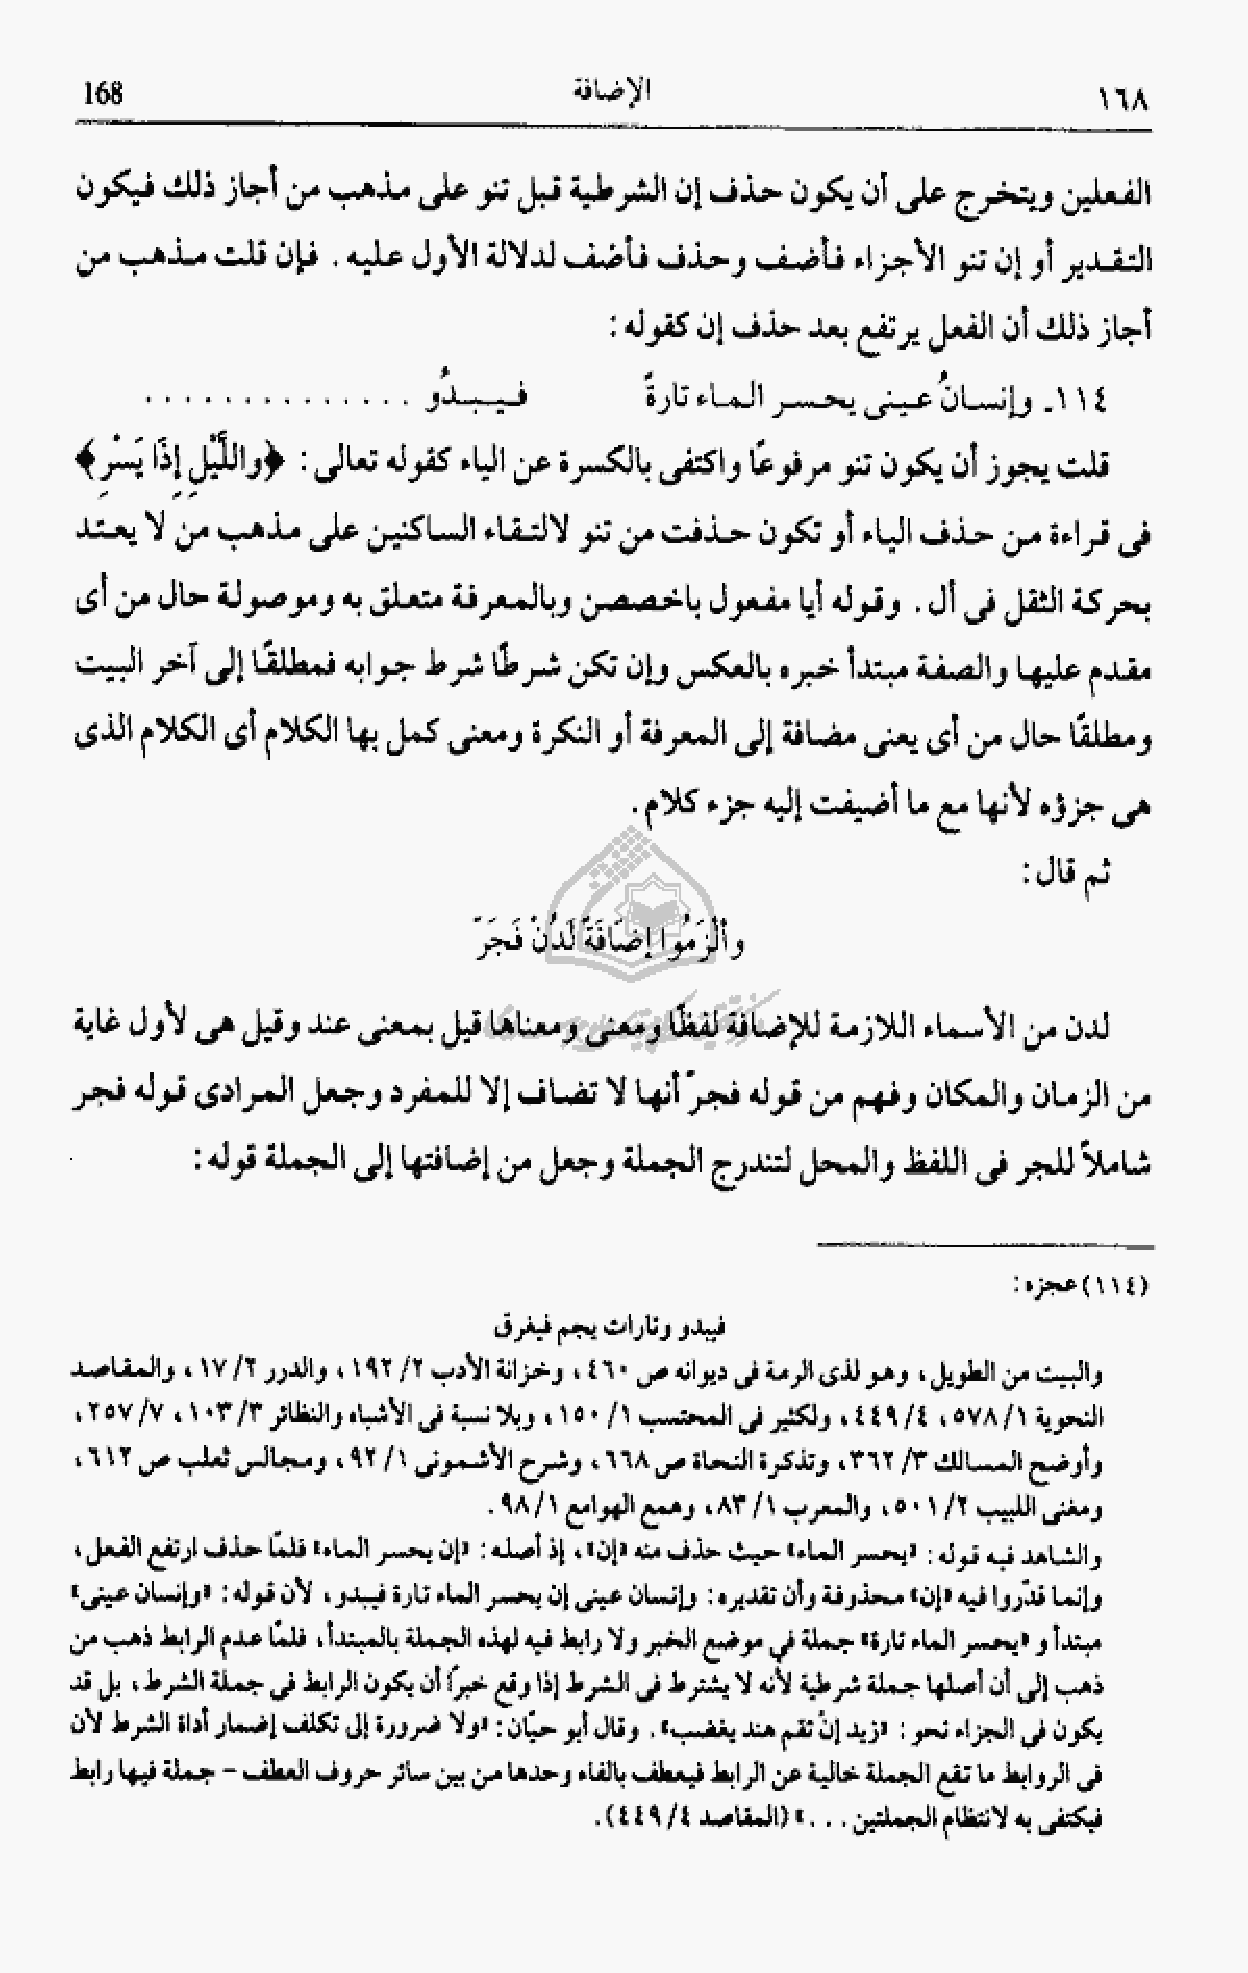 ١٦٨ الإضافة 168
الفعلين ويتخرج على أن يكون حذف إن الشرطية قبل تنو على مذهب من أجاز ذلك فيكون
التقدير أو إن تنو الأجزاء فأضف وحذف فأضف لدلالة الأول عليه . فإن قلت مذهب من
أجاز ذلك أن الفعل يرتفع بعد حذف إن كقوله :
١١٤ـ وإنسانُ عينى يحسر الماء تارةً فيبدُو . . . . . . . . . . . . . .
قلت يجوز أن يكون تنو مرفوعًا واكتفى بالكسرة عن الياء كقوله تعالى : ﴿واللَّيْلِ إِذَا يَسْرِ﴾
فى قراءة من حذف الياء أو تكون حذفت من تنو لالتقاء الساكنين على مذهب من لا يعتد
بحركة الثقل فى لأ . وقوله أيا مفعول باخصصن وبالمعرفة متعلق به وموصولة حال من أى
مقدم عليها والصفة مبتدأ خبره بالعكس وإن تكن شرطًا شرط جوابه فمطلقًا إلى آخر البيت
ومطلقًا حال من أى يعنى مضافة إلى المعرفة أو النكرة ومعنى كمل بها الكلام أى الكلام الذى
هى جزؤه لأنها مع ما أضيفت إليه جزء كلام .
ثم قال :
وألْزَمُوا إضَافَةً لَدُنْ فَجَرّ
لدن من الأسماء اللازمة للإضافة لفظًا ومعنى ومعناها قيل بمعنى عند وقيل هى لأول غاية
من الزمان والمكان وفهم من قوله فجرّ أنها لا تضاف إلا للمفرد وجعل المرادى قوله فجر
شاملاً للجر فى اللفظ والمحل لتندرج الجملة وجعل من إضافتها إلى الجملة قوله :
(١١٤) عجزه :
فيبدو وتارات يجم فيغرق
والبيت من الطويل ، وهو لذى الرمة فى ديوانه ص ٤٦٠ ، وخزانة الأدب ٢/ ١٩٢ ، والدرر ٢/ ١٧ ، والمقاصد
النحوية ١/ ٥٧٨ ، ٤/ ٤٤٩ ، ولكثير فى المحتسب ١/ ١٥٠ ، وبلا نسبة فى الأشباه والنظائر ٣/ ١٠٣ ، ٧/ ٢٥٧ ،
وأوضح المسالك ٣/ ٣٦٢ ، وتذكرة النحاة ص ٦٦٨ ، وشرح الأشمونى ١/ ٩٢ ، ومجالس ثعلب ص ٦١٢ ،
ومغنى اللبيب ٢/ ٥٠١ ، والمعرب ١/ ٨٣ ، وهمع الهوامع ١/ ٩٨ .
والشاهد فيه قوله : «يحسر الماء» حيث حذف منه «إن» ، إذ أصله : «إن يحسر الماء» فلمّا حذف ارتفع الفعل ،
وإنما قدّروا فيه «إن» محذوفة وأن تقديره : وإنسان عينى إن يحسر الماء تارة فيبدو ، لأن قوله : «وإنسان عينى»
مبتدأ و «يحسر الماء تارة» جملة فى موضع الخبر ولا رابط فيه لهذه الجملة بالمبتدأ ، فلمّا عدم الرابط ذهب من
ذهب إلى أن أصلها جملة شرطية لأنه لا يشترط فى الشرط إذا وقع خبرًا أن يكون الرابط فى جملة الشرط ، بل قد
يكون فى الجزاء نحو : «زيد إن تقم هند يغضب» . وقال أبو حيّان : «ولا ضرورة إلى تكلف إضمار أداة الشرط لأن
فى الروابط ما تقع الجملة خالية عن الرابط فيعطف بالفاء وحدها من بين سائر حروف العطف – جملة فيها رابط
فيكتفى به لانتظام الجملتين . . . » (المقاصد ٤/ ٤٤٩).